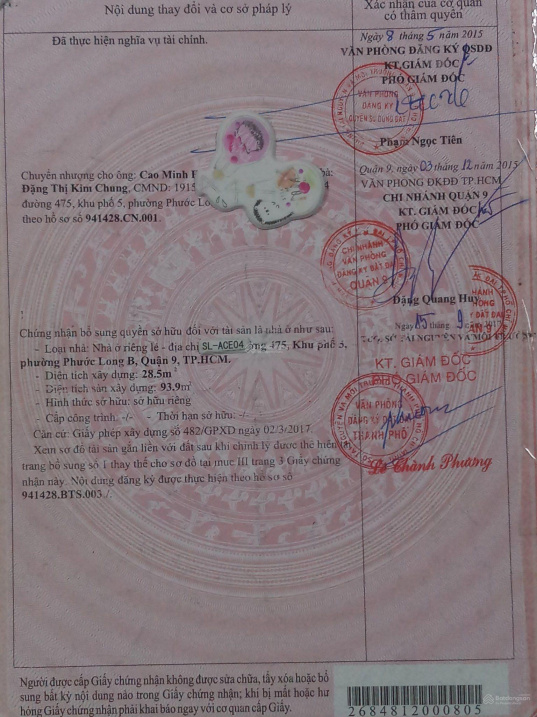 Nội dung thay đổi và cơ sở pháp lý
Xác nhận của cơ quan
có thẩm quyền
Đã thực hiện nghĩa vụ tài chính.
Ngày 8 tháng 5 năm 2015
VĂN PHÒNG ĐĂNG KÝ QSDĐ
KT.GIÁM ĐỐC
PHÓ GIÁM ĐỐC
VĂN PHÒNG
ĐĂNG KÝ
QUYỀN SỬ DỤNG ĐẤT
Phạm Ngọc Tiên
Chuyển nhượng cho ông: Cao Minh
bà:
Đặng Thị Kim Chung, CMND: 1915
đường 475, khu phố 5, phường Phước Lo
theo hồ sơ số 941428.CN.001.
Quận 9, ngày 03 tháng 12 năm 2015
VĂN PHÒNG ĐKĐĐ TP.HCM
CHI NHÁNH QUẬN 9
KT. GIÁM ĐỐC
PHÓ GIÁM ĐỐC
CHI NHÁNH
VĂN PHÒNG
ĐĂNG KÝ ĐẤT ĐAI
QUẬN 9
Đặng Quang Huy
Chứng nhận bổ sung quyền sở hữu đối với tài sản là nhà ở như sau:
- Loại nhà: Nhà ở riêng lẻ - địa chỉ SL-ACE04 ờng 475, Khu phố 5,
phường Phước Long B, Quận 9, TP.HCM.
- Diện tích xây dựng: 28.5m²
- Diện tích sàn xây dựng: 93.9m²
- Hình thức sở hữu: sở hữu riêng
- Cấp công trình: -/- - Thời hạn sở hữu: -/-
Căn cứ: Giấy phép xây dựng số 482/GPXD ngày 02/3/2017.
Xem sơ đồ tài sản gắn liền với đất sau khi chỉnh lý được thể hiện
trang bổ sung số 1 thay thế cho sơ đồ tại mục III trang 3 Giấy chứng
nhận này. Nội dung đăng ký được thực hiện theo hồ sơ số
941428.BTS.003./.
Ngày 15 tháng 9
SỞ TÀI NGUYÊN VÀ MÔI TRƯỜNG
KT. GIÁM ĐỐC
PHÓ GIÁM ĐỐC
VĂN PHÒNG
ĐĂNG KÝ ĐẤT ĐAI
THÀNH PHỐ
Lê Chánh Phương
Người được cấp Giấy chứng nhận không được sửa chữa, tẩy xóa hoặc bổ
sung bất kỳ nội dung nào trong Giấy chứng nhận; khi bị mất hoặc hư
hỏng Giấy chứng nhận phải khai báo ngay với cơ quan cấp Giấy.
2684812000805